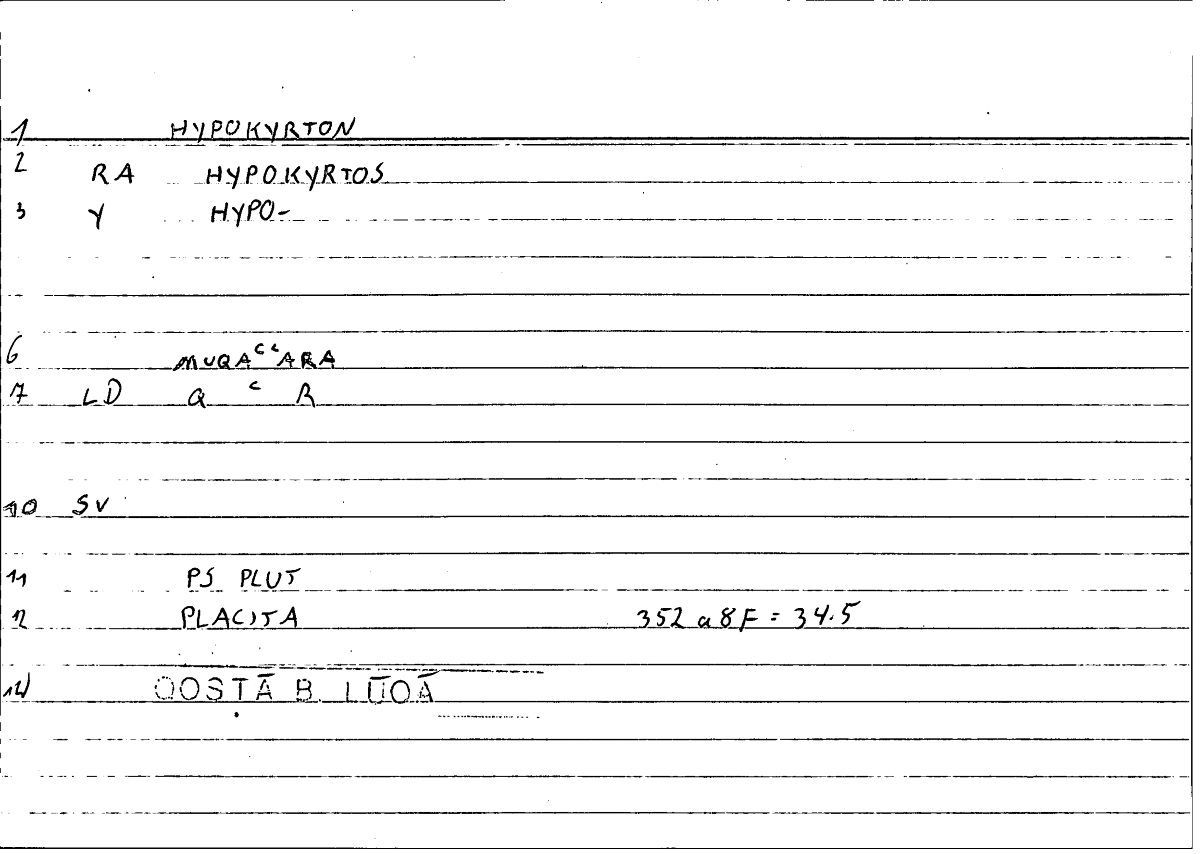 1 HYPOKYRTON
2 RA HYPOKYRTOS
3 Y HYPO-
6 MUQAᶜᶜARA
7 LD Q ᶜ R
10 SV
11 PS PLUT
12 PLACITA 352 a 8F = 34.5
14 QOSṬĀ B. LŪQĀ